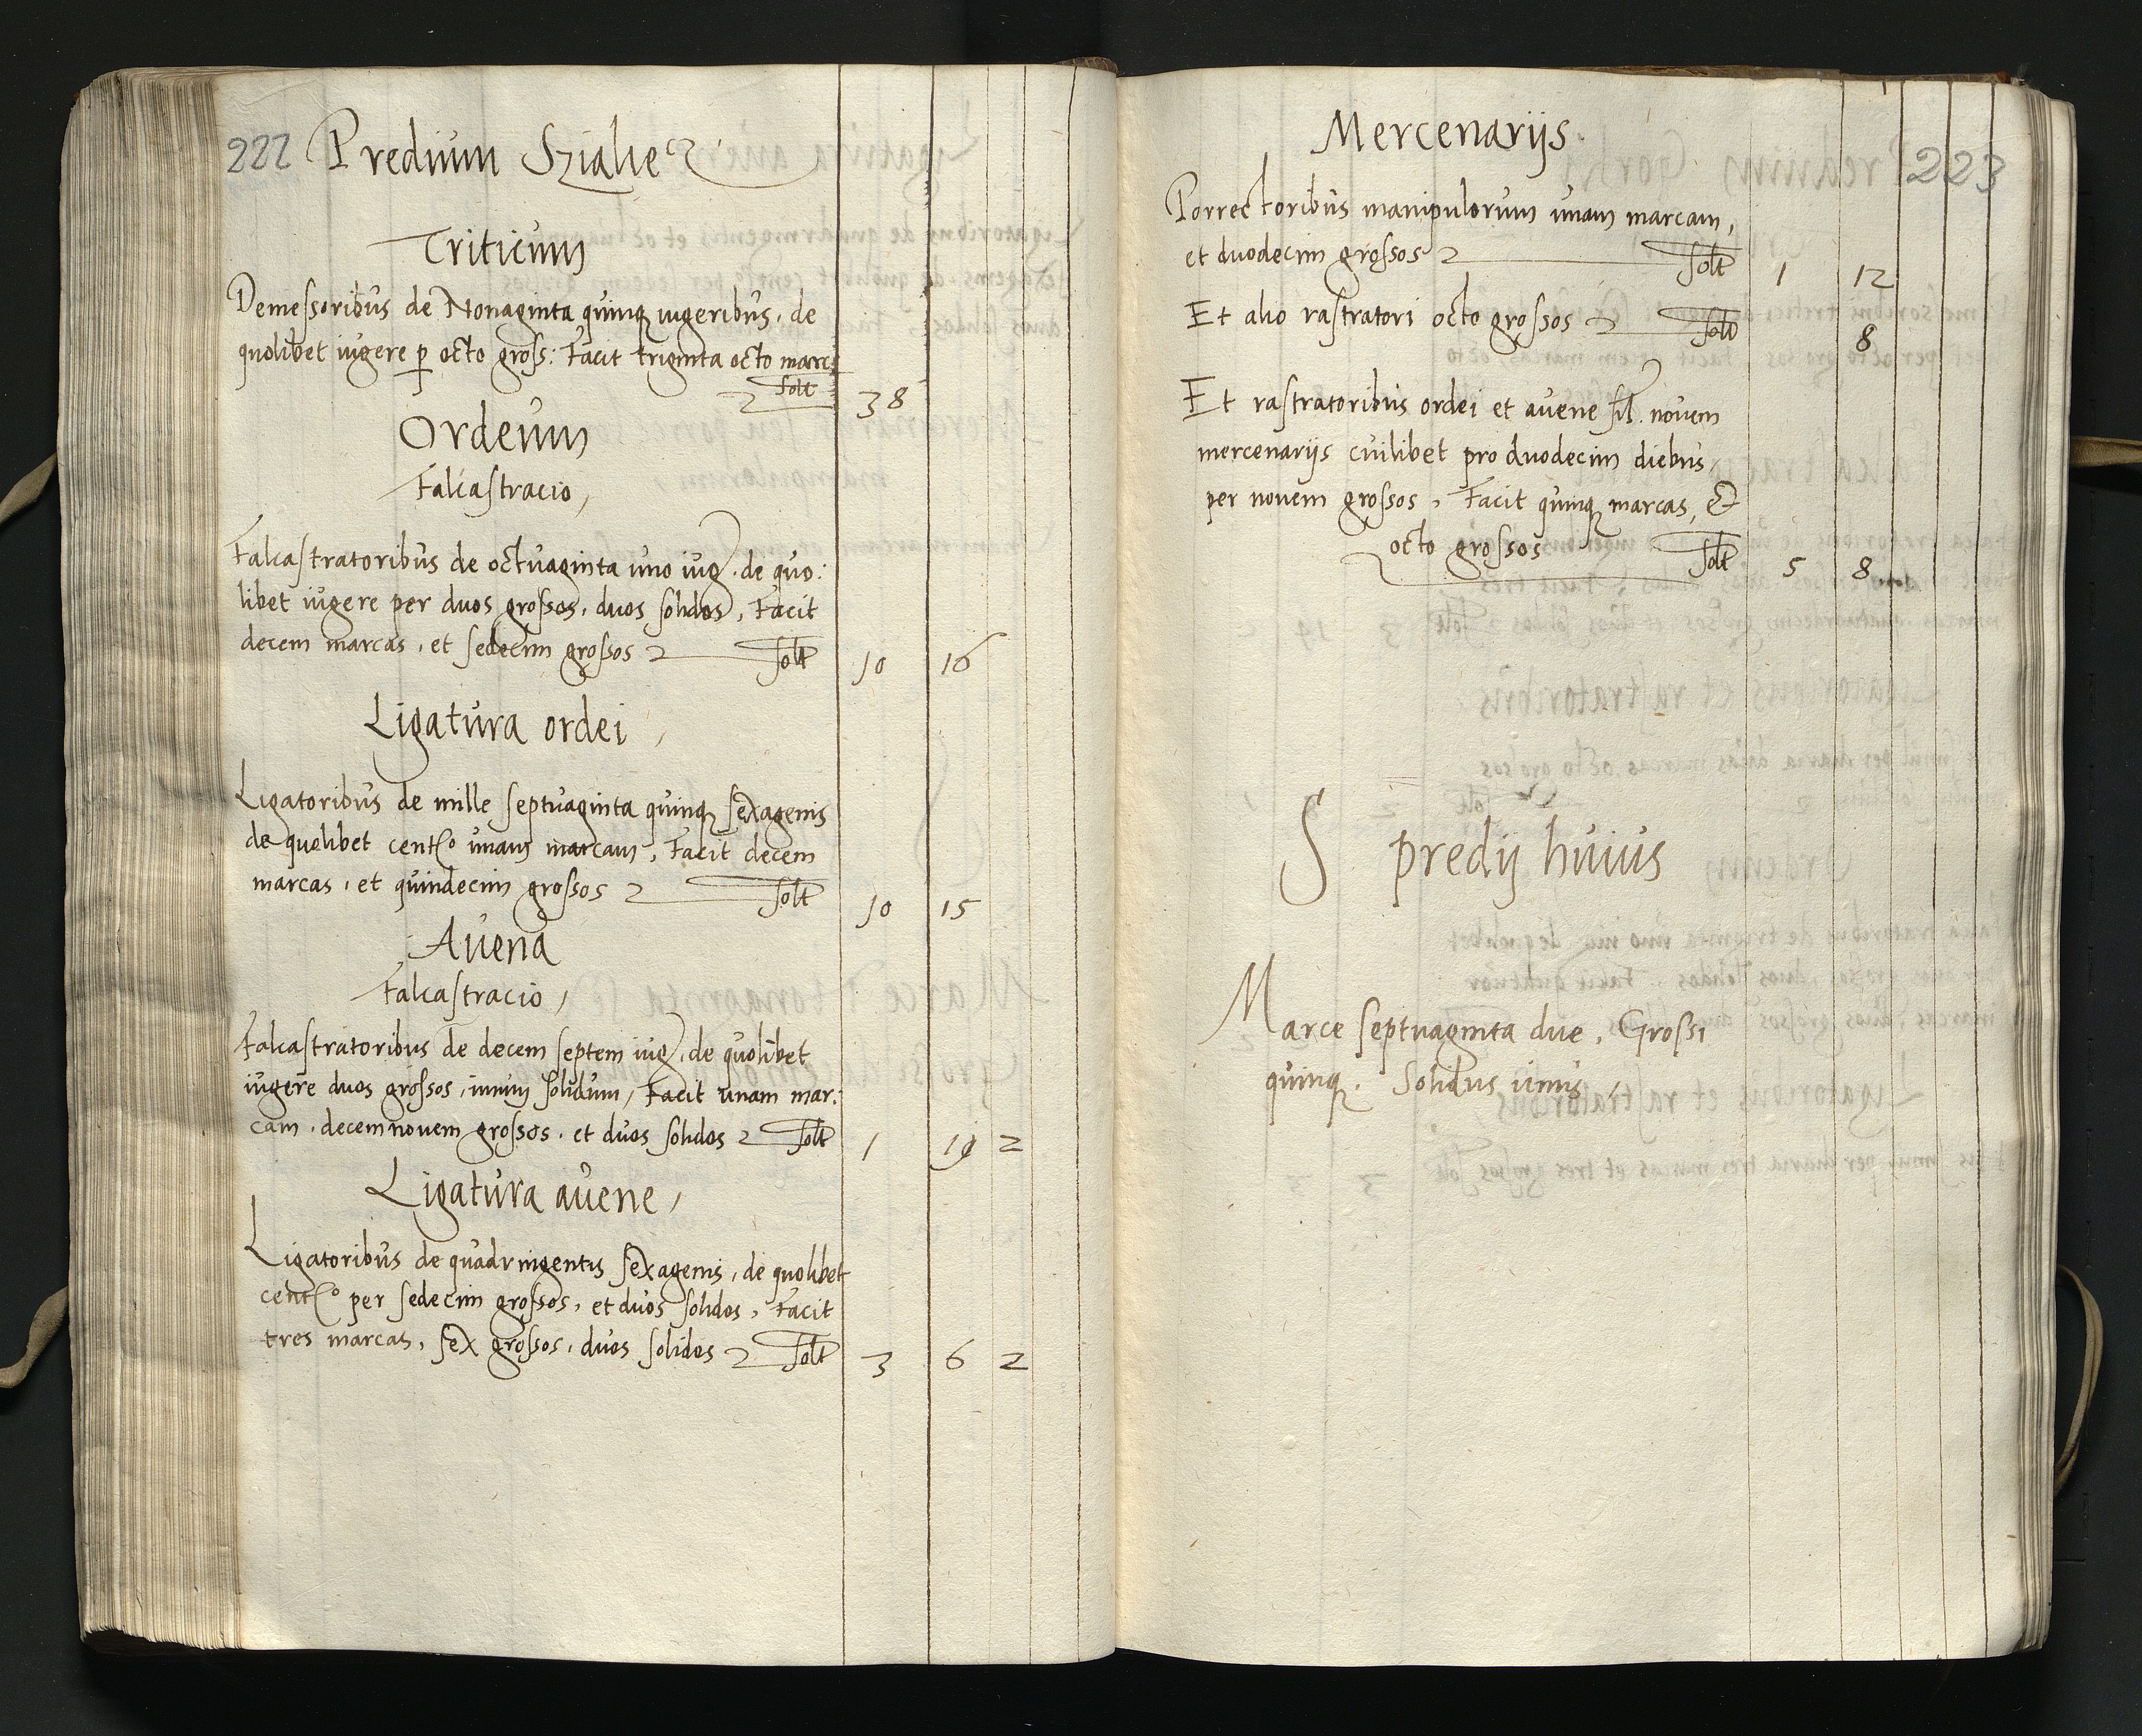 222 Predium Szialue
Triticum
Demessoribus de Nonaginta quinq iugeribus, de
quolibet iugere p octo gross: Facit triginta octo marc
solt 38
Ordeum
Falcastracio,
Falcastratoribus de octuaginta uno iug, de quo:
libet iugere per duos grossos, duos solidos, Facit
decem marcas, et sedecim grossos solt 10 16
Ligatura ordei,
Ligatoribus de mille septuaginta quinq sexagenis
de quolibet cento unam marcam, Facit decem
marcas, et quindecim grossos solt 10 15
Auena
Falcastracio,
Falcastratoribus de decem septem iug, de quolibet
iugere duos grossos, unum solidum, Facit unam mar:
cam, decem nouem grossos, et duos solidos solt 1 19 2
Ligatura auene,
Ligatoribus de quadringentis sexagenis, de quolibet
cento per sedecim grossos, et duos solidos, Facit
tres marcas, sex grossos, duos solidos solt 3 6 2
223
Mercenarijs
Porrectoribus manipulorum unam marcam,
et duodecim grossos solt 1 12
Et alio rastratori octo grossos solt 8
Et rastratoribus ordei et auene sil. nouem
mercenarijs cuilibet pro duodecim diebus,
per nouem grossos, Facit quinq marcas, et
octo grossos solt 5 8
S predij huius
Marce septuaginta due, Grossi
quinq. Solidus unus,